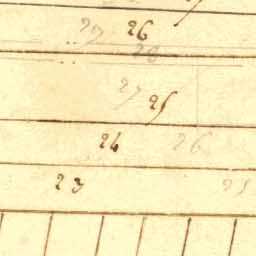 27 26
26
27 25
24 26
23 25